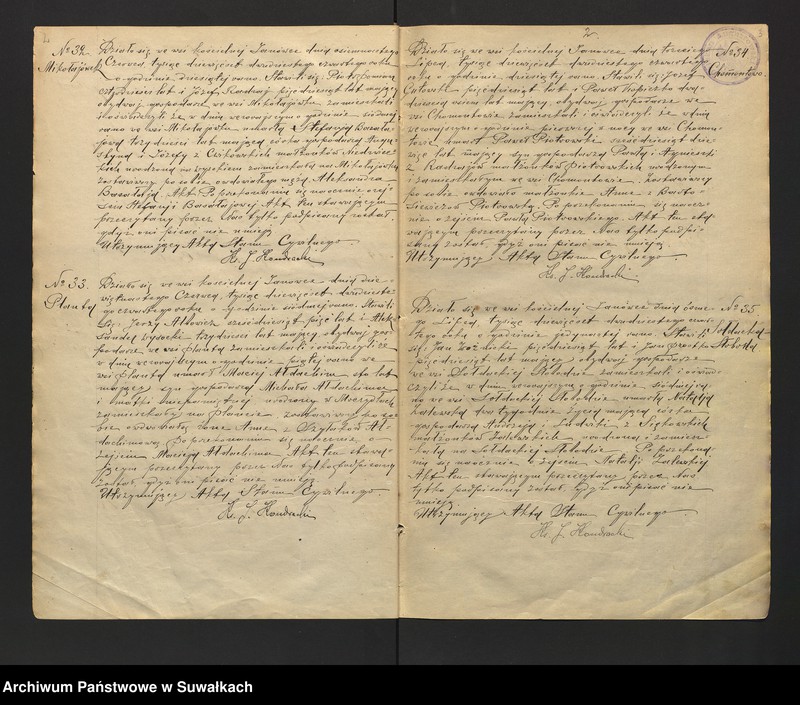 No 32
Mikołajówek
Działo się we wsi kościelnej Janówce dnia osiemnastego
Czerwca, tysiąc dziewięćset dwudziestego czwartego roku
o godzinie dziesiątej rano. Stawili się: Piotr
lat i Józef pięćdziesiąt lat mający
obydwaj gospodarze we wsi Mikołajówku zamieszkali
i oświadczyli, że w dniu wczorajszym o godzinie siódmej
rano we wsi Mikołajówku umarła Stefanja
trzydzieści lat mająca córka gospodarza
i Józefy z małżonków
urodzona zamieszkała na Mikołajówku
zostawiwszy po sobie owdowiałego męża Aleksandra
Po przekonaniu się naocznie o zej-
ściu Stefanji Akt ten stawającym
przeczytany przez Nas tylko podpisany został,
gdyż oni pisać nie umieją
Utrzymujący Akta Stanu Cywilnego
Ks. J.
No 33.
Planta
Działo się we wsi kościelnej Janówce dnia dzie-
więtnastego Czerwca, tysiąc dziewięćset dwudzieste-
go czwartego roku o godzinie siódmej rano. Stawili
się: Jerzy sześćdziesiąt pięć lat i Alek-
sander Wysocki trzydzieści lat mający obydwaj gos-
podarze we wsi Planta zamieszkali i oświadczyli, że
w dniu wczorajszym o godzinie piątej rano we
wsi Planta umarł Maciej sto lat
mający syn gospodarza Michała
i matki niepamiętnej urodzony w
zamieszkały na Plancie zostawiwszy po so-
bie owdowiałą żonę Annę z
Po przekonaniu się naocznie o
zejściu Macieja Akt ten stawa-
jącym przeczytany przez Nas tylko podpisany
został, gdyż oni pisać nie umieją
Utrzymujący Akta Stanu Cywilnego
Ks. J.
2.
No 34
Chomontowo.
Działo się we wsi kościelnej Janówce dnia trzeciego
Lipca, tysiąc dziewięćset dwudziestego czwartego
roku o godzinie dziesiątej rano. Stawili się: Józef
pięćdziesiąt lat i Paweł dwa-
dzieścia osiem lat mający, obydwaj gospodarze we
wsi Chomontowie zamieszkali i oświadczyli, że w dniu
wczorajszym o godzinie pierwszej z nocy we wsi Chomon-
towie umarł Paweł Piotrowski sześćdziesiąt dzie-
więć lat mający syn gospodarza Pawła i Agnieszki
z małżonków Piotrowskich urodzony
i zamieszkały we wsi Chomontowie. Zostawiwszy
po sobie owdowiałą małżonkę Annę z
Piotrowską. Po przekonaniu się naocz-
nie o zejściu Pawła Piotrowskiego. Akt ten sta-
wającym przeczytany przez Nas tylko podpi-
sany został, gdyż oni pisać nie umieją.
Utrzymujący Akta Stanu Cywilnego.
Ks. J.
No 35
Sołdacka
Słoboda
Działo się we wsi kościelnej Janówce dnia
Lipca, tysiąc dziewięćset dwudziestego czwar-
tego roku o godzinie rano. Stawili
się: Jan pięćdziesiąt lat i Jan
pięćdziesiąt lat mający, obydwaj gospodarze
we wsi Sołdackiej Słobodzie zamieszkali i oświad-
czyli, że w dniu wczorajszym o godzinie siódmej
we wsi Sołdackiej Słobodzie umarła Natalja
Zalewska dwa tygodnie życia mająca córka
gospodarza Andrzeja i Ludwiki z
małżonków Zalewskich urodzona i zamiesz-
kała na Sołdackiej Słobodzie Po przekona-
niu się naocznie o zejściu Natalji Zalewskiej
Akt ten stawającym przeczytany, przez Nas
tylko podpisany został, gdyż oni pisać nie
umieją
Utrzymujący Akta Stanu Cywilnego.
Ks. J.
Archiwum Państwowe w Suwałkach